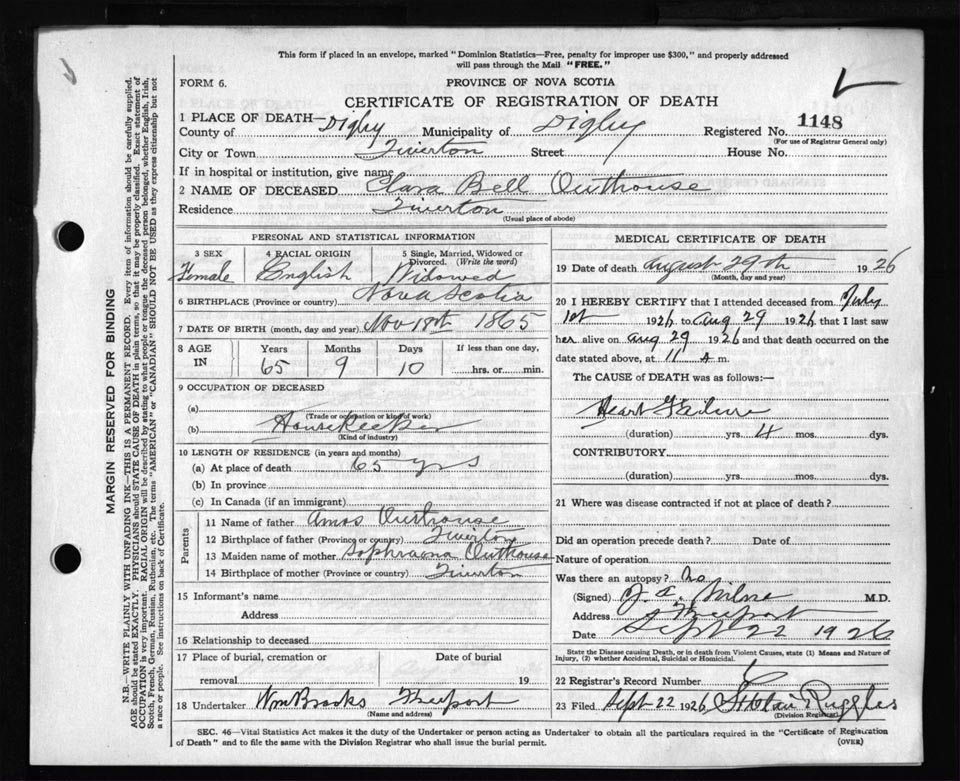 This form if placed in an envelope, marked "Dominion Statistics—Free, penalty for improper use $300," and properly addressed
will pass through the Mail "FREE."
FORM 6.
PROVINCE OF NOVA SCOTIA
CERTIFICATE OF REGISTRATION OF DEATH
1 PLACE OF DEATH—
County of Digby Municipality of Digby Registered No. 1148
(For use of Registrar General only)
City or Town Tiverton Street House No.
If in hospital or institution, give name
2 NAME OF DECEASED Clara Bell Outhouse
Residence Tiverton
(Usual place of abode)
PERSONAL AND STATISTICAL INFORMATION
3 SEX 4 RACIAL ORIGIN 5 Single, Married, Widowed or
Divorced. (Write the word)
Female English Widowed
6 BIRTHPLACE (Province or country) Nova Scotia
7 DATE OF BIRTH (month, day and year) Nov 18th 1865
8 AGE IN Years Months Days If less than one day,
65 9 10 hrs. or min.
9 OCCUPATION OF DECEASED
(a)
(Trade or occupation or kind of work)
(b) Housekeeper
(Kind of industry)
10 LENGTH OF RESIDENCE (in years and months)
(a) At place of death 65 yrs
(b) In province
(c) In Canada (if an immigrant)
Parents
11 Name of father Amos Outhouse
12 Birthplace of father (Province or country) Tiverton
13 Maiden name of mother Outhouse
14 Birthplace of mother (Province or country) Tiverton
15 Informant's name
Address
16 Relationship to deceased
17 Place of burial, cremation or Date of burial
removal 19
18 Undertaker Wm Brooks Freeport
(Name and address)
MEDICAL CERTIFICATE OF DEATH
19 Date of death August 29th 1926
(Month, day and year)
20 I HEREBY CERTIFY that I attended deceased from July
1st 1926 to Aug 29 1926, that I last saw
her alive on Aug 29 1926 and that death occurred on the
date stated above, at 11 A m.
The CAUSE of DEATH was as follows:—
Heart Failure
(duration) yrs. 4 mos. dys.
CONTRIBUTORY
(duration) yrs. mos. dys.
21 Where was disease contracted if not at place of death?
Did an operation precede death? Date of
Nature of operation
Was there an autopsy? No
(Signed) Milne M.D.
Address Freeport
Date Sept 22 1926
State the Disease causing Death, or in death from Violent Causes, state (1) Means and Nature of
Injury, (2) whether Accidental, Suicidal or Homicidal.
22 Registrar's Record Number
23 Filed Sept 22 1926 Ruggles
(Division Registrar)
SEC. 46—Vital Statistics Act makes it the duty of the Undertaker or person acting as Undertaker to obtain all the particulars required in the "Certificate of Registration
of Death" and to file the same with the Division Registrar who shall issue the burial permit. (OVER)
MARGIN RESERVED FOR BINDING
N.B.—WRITE PLAINLY WITH UNFADING INK—THIS IS A PERMANENT RECORD. Every item of information should be carefully supplied.
AGE should be stated EXACTLY. PHYSICIANS should STATE CAUSE OF DEATH in plain terms, so that it may be properly classified. Exact statement of
OCCUPATION is very important. RACIAL ORIGIN will be described by stating to what people or tongue the deceased person belonged, whether English, Irish,
Scotch, French, German, Russian, Ruthenian, etc. The terms "AMERICAN" or "CANADIAN" SHOULD NOT BE USED as they express citizenship but not
a race or people. See instructions on back of Certificate.